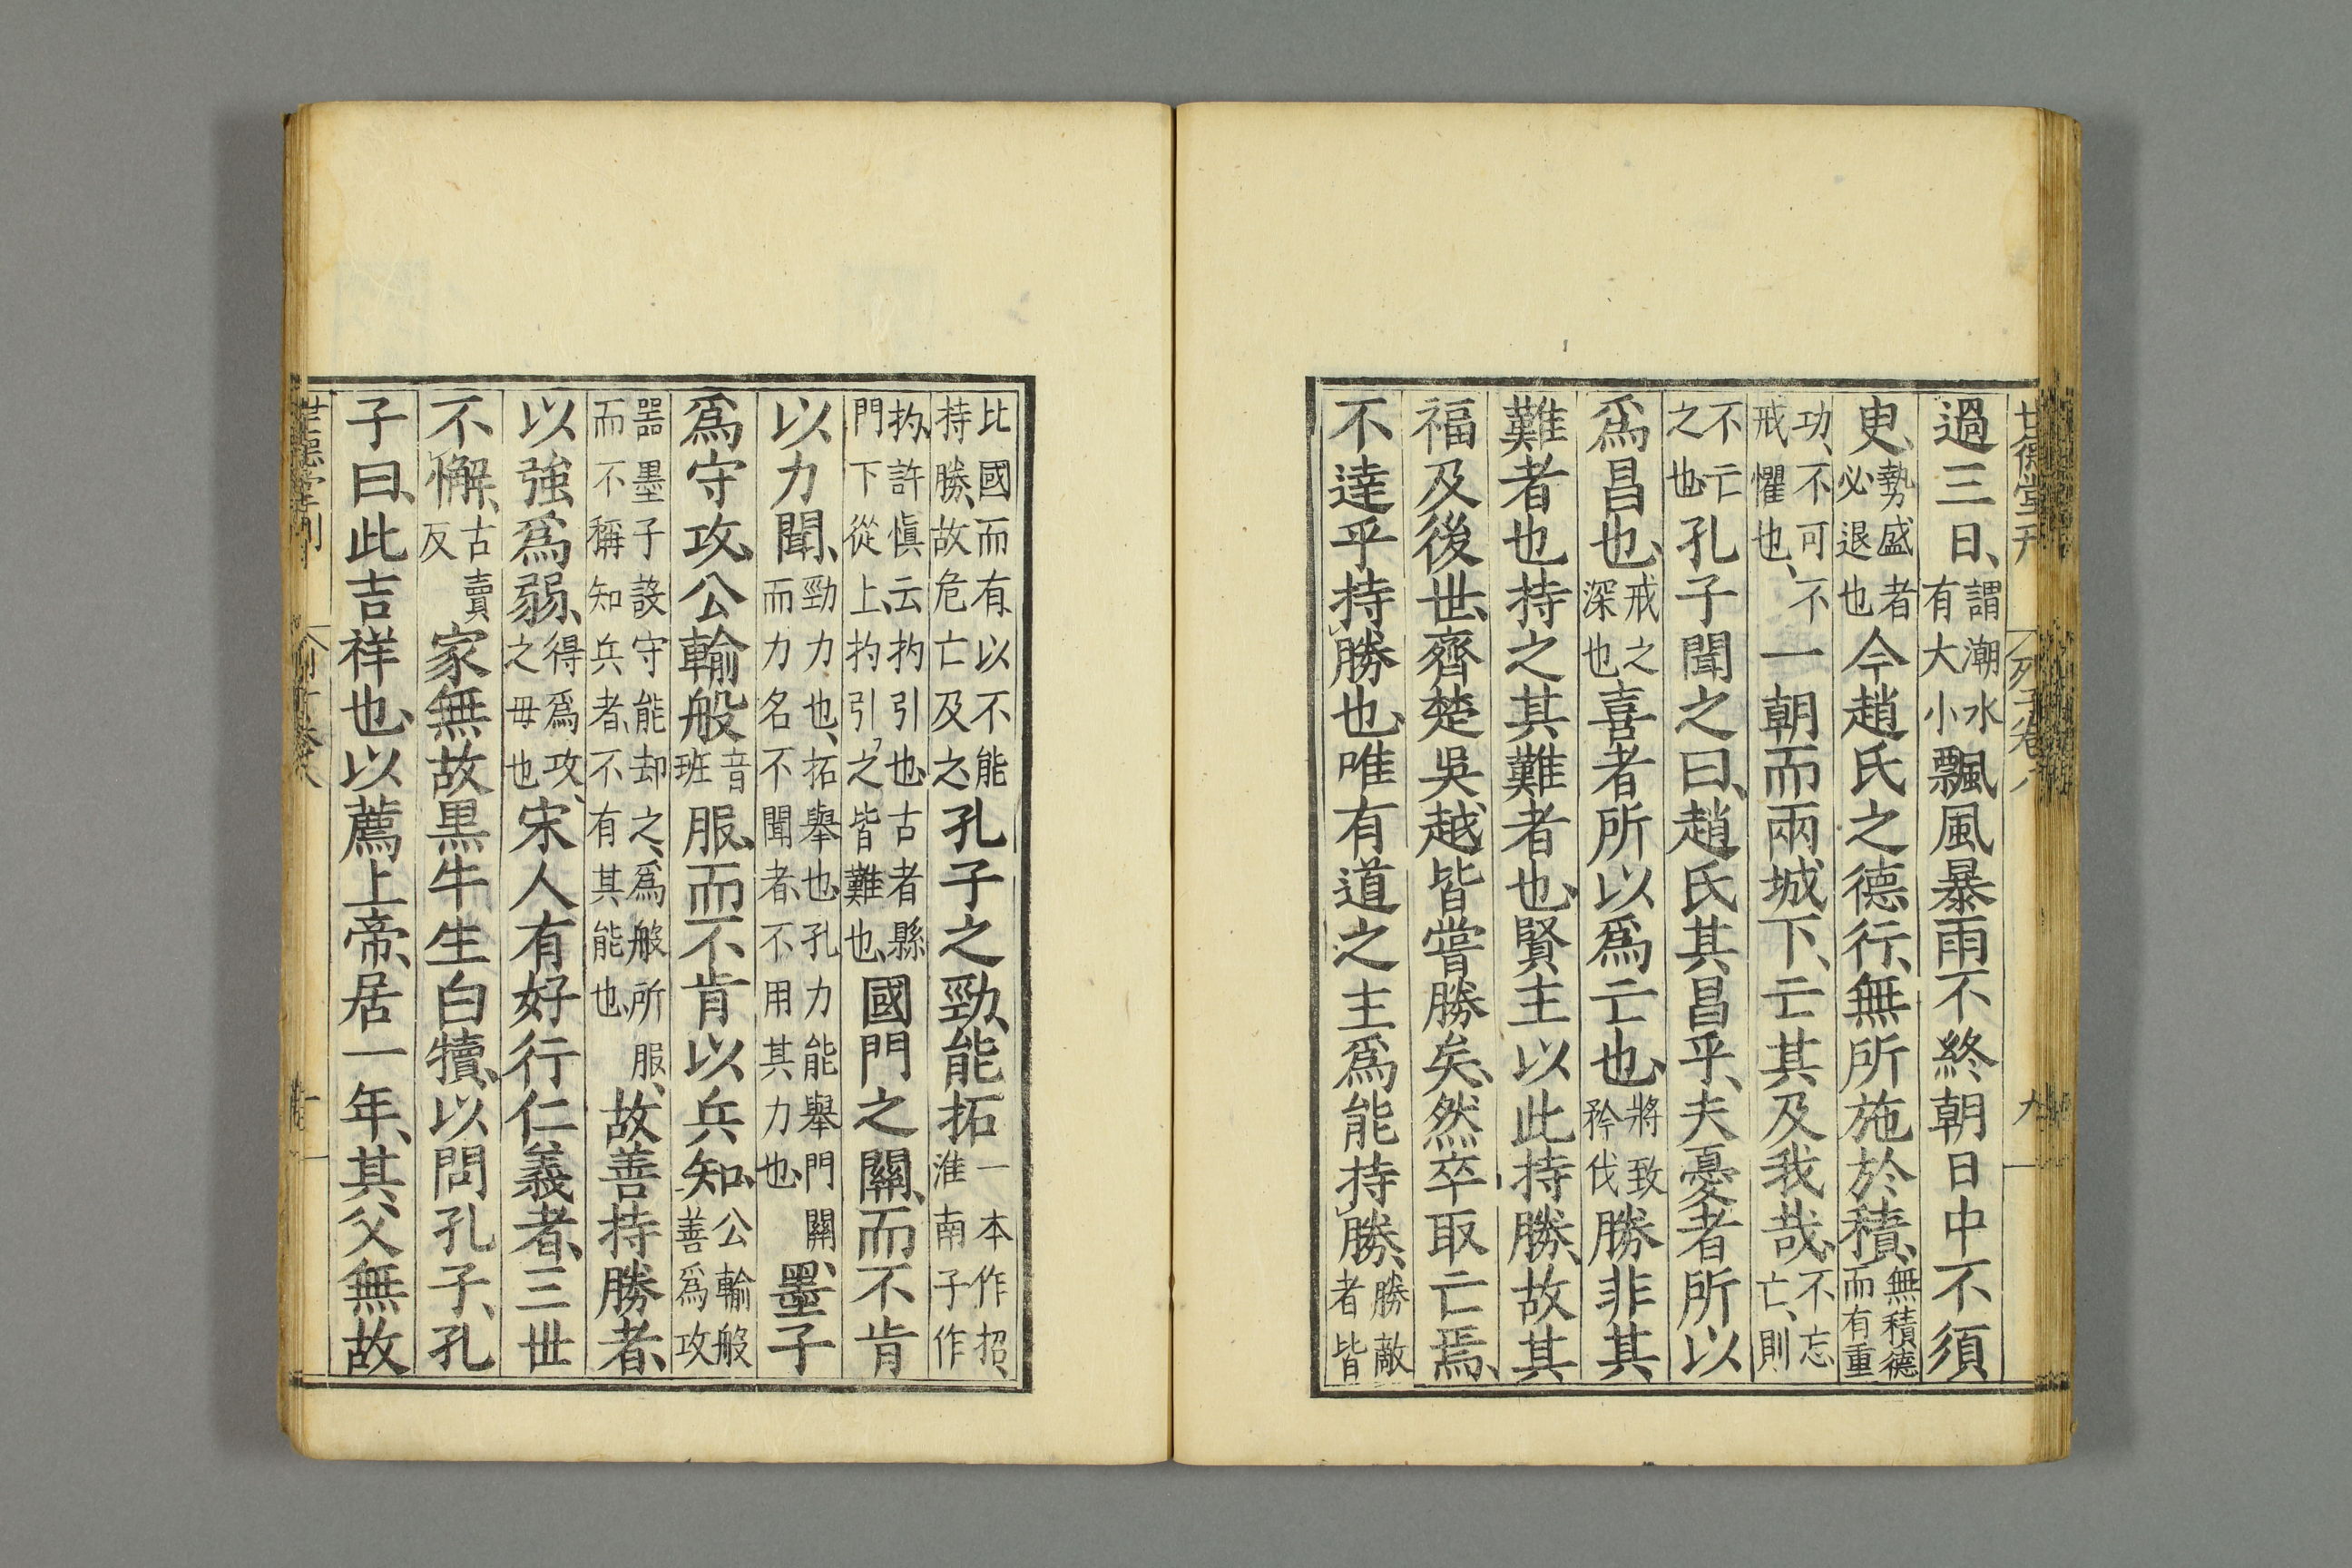 過三日、謂潮水有大小飄風暴雨不終朝日中不須
臾、勢盛者必退也今趙氏之德行、無所施於積、無積德而有重
功、不可不戒懼也、一朝而兩城下、亡其及我哉、不忘亡、則
不亡之也孔子聞之曰、趙氏其昌乎、夫憂者所以
爲昌也、戒之深也喜者所以爲亡也、將致矜伐勝非其
難者也持之其難者也、賢主以此持勝、故其
福及後世、齊楚吳越皆嘗勝矣、然卒取亡焉、
不達乎持勝也、唯有道之主爲能持勝、勝敵者皆
比國而有以不能持勝、故危亡及之、孔子之勁、能拓一本作招、淮南子作
扚、許愼云扚引也、古者縣門下從上、扚引之皆難也、國門之關、而不肯
以力聞、勁力也、拓舉也、孔力能舉門關、而力名不聞者、不用其力也、墨子
爲守攻、公輸般音班服、而不肯以兵知、公輸般善爲攻
器墨子設守能却之、爲般所服、而不稱知兵者、不有其能也、故善持勝者、
以強爲弱、得爲攻之毋也、宋人有好行仁義者、三世
不懈、古賣反家無故黒牛生白犢、以問孔子、孔
子曰、此吉祥也、以薦上帝、居一年、其父無故